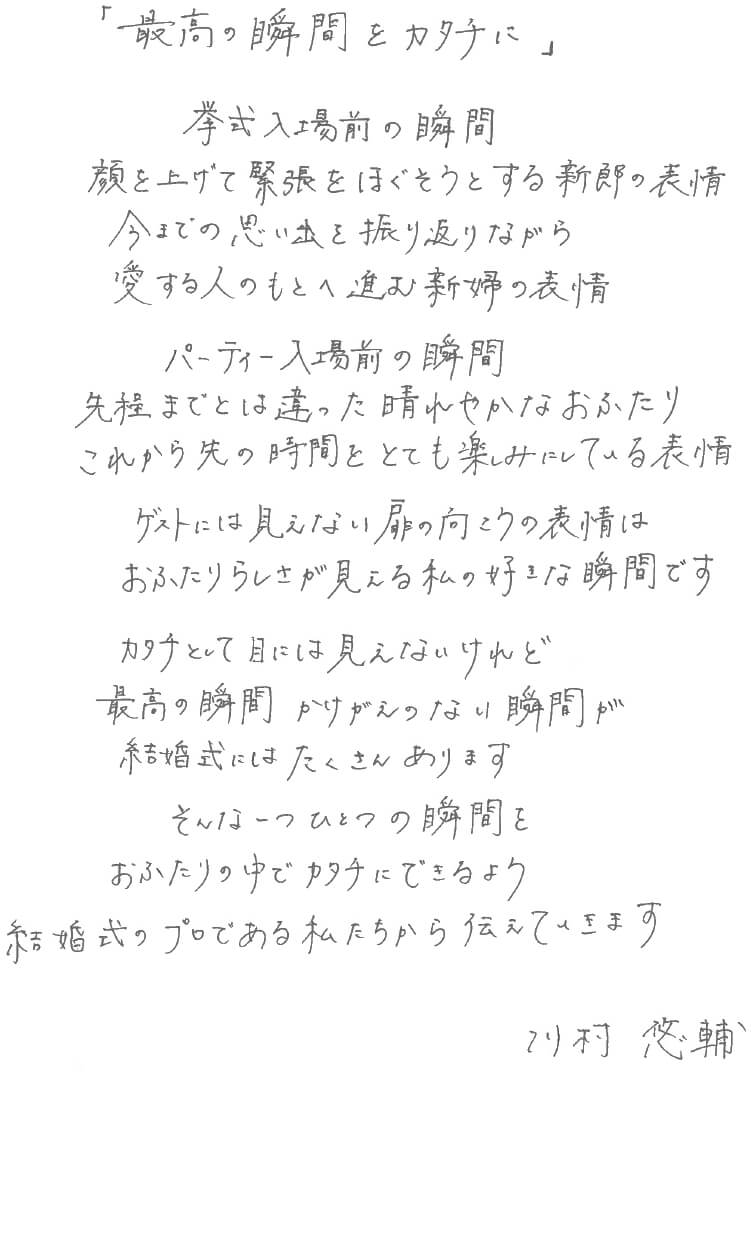 「最高の瞬間をカタチに」
挙式入場前の瞬間
顔を上げて緊張をほぐそうとする新郎の表情
今までの思い出を振り返りながら
愛する人のもとへ進む新婦の表情
パーティー入場前の瞬間
先程までとは違った晴れやかなおふたり
これから先の時間をとても楽しみにしている表情
ゲストには見えない扉の向こうの表情は
おふたりらしさが見える私の好きな瞬間です
カタチとして目には見えないけれど
最高の瞬間 かけがえのない瞬間が
結婚式にはたくさんあります
そんな一つひとつの瞬間を
おふたりの中でカタチにできるよう
結婚式のプロである私たちから伝えていきます
川村 悠輔